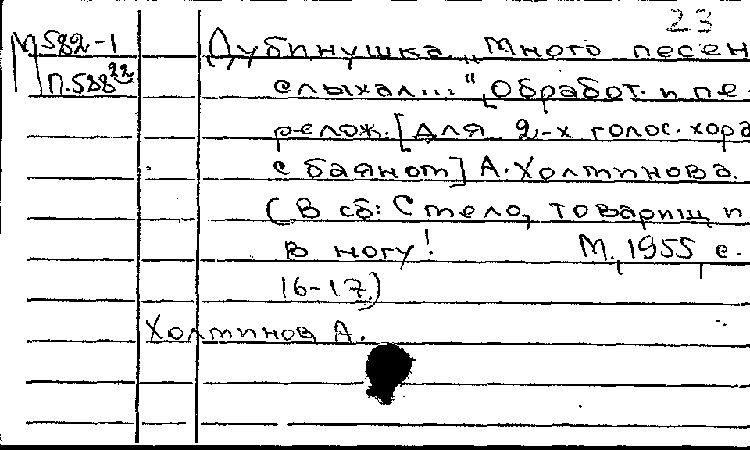 23
М 582-1
П.588²²
Дубинушка „Много песен
слыхал..." Обработ. и пе-
релож. [для 2-х голос. хора
с баяном] А. Холминова.
(В сб: Смело, товарищи
в ногу! М., 1955, с.
16-17)
Холминов А.